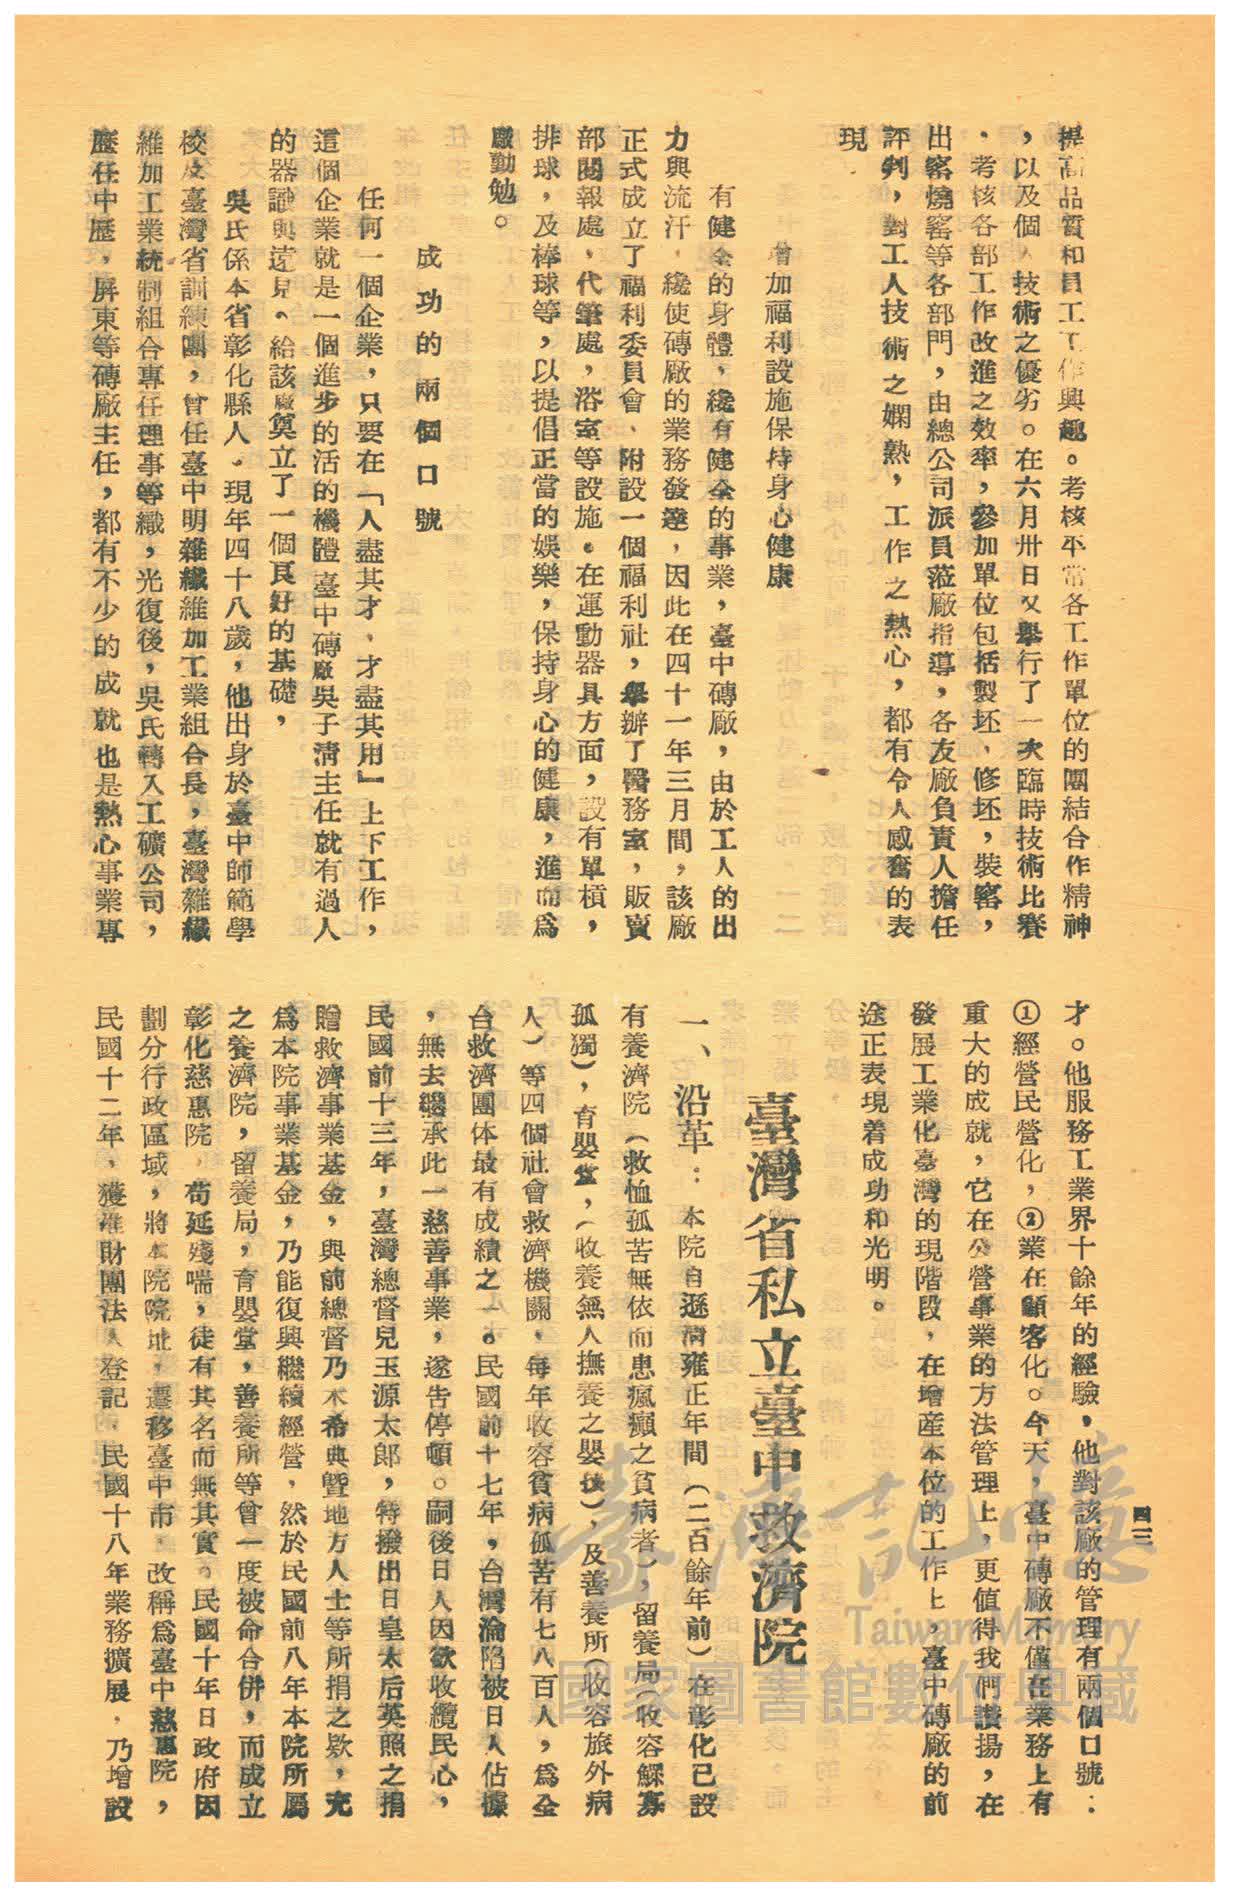 提高品質和員工工作興趣。考核平常各工作單位的團結合作精神
，以及個人技術之優劣。在六月卅日又舉行了一次臨時技術比賽
，考核各部工作改進之效率，參加單位包括製坯，修坯，裝窰，
出窰燒窰等各部門，由總公司派員蒞廠指導，各友廠負責人擔任
評判，對工人技術之嫻熟，工作之熱心，都有令人感奮的表
現
增加福利設施保持身心健康
有健全的身體，纔有健全的事業，臺中磚廠，由於工人的出
力與流汗，纔使磚廠的業務發達，因此在四十一年三月間，該廠
正式成立了福利委員會、附設一個福利社，舉辦了醫務室，販賣
部閱報處，代筆處，浴室等設施。在運動器具方面，設有單槓，
排球，及棒球等，以提倡正當的娛樂，保持身心的健康，進而為
廠勤勉。
成功的兩個口號
任何一個企業，只要在「人盡其才，才盡其用」上下工作，
這個企業就是一個進步的活的機體臺中磚廠吳子清主任就有過人
的器識與遠見。給該廠奠立了一個良好的基礎，
吳氏係本省彰化縣人。現年四十八歲，他出身於臺中師範學
校及臺灣省訓練團，曾任臺中明雜纖維加工業組合長，臺灣雜纖
維加工業統制組合專任理事等織，光復後，吳氏轉入工礦公司，
歷任中歷，屏東等磚廠主任，都有不少的成就也是熱心事業專
才。他服務工業界十餘年的經驗，他對該廠的管理有兩個口號：
①經營民營化，②業在顧客化。今天，臺中磚廠不僅在業務上有
重大的成就，它在公營事業的方法管理上，更值得我們讚揚，在
發展工業化臺灣的現階段，在增產本位的工作上，臺中磚廠的前
途正表現着成功和光明。
臺灣省私立臺中救濟院
一、沿革：本院自遜清雍正年間（二百餘年前）在彰化已設
有養濟院（救恤孤苦無依而患瘋癲之貧病者），留養局（收容鰥寡
孤獨），育嬰堂，（收養無人撫養之嬰孩），及善養所（收容旅外病
人）等四個社會救濟機關，每年收容貧病孤苦有七八百人，為全
台救濟團体最有成績之一。民國前十七年，台灣淪陷被日人佔據
，無去繼承此一慈善事業，遂告停頓。嗣後日人因欲收纜民心，
民國前十三年，臺灣總督兒玉源太郎，特撥出日皇太后英照之捐
贈救濟事業基金，與前總督乃木希典暨地方人士等所捐之欵，充
為本院事業基金，乃能復興繼續經營，然於民國前八年本院所屬
之養濟院，留養局，育嬰堂，善養所等曾一度被命合併，而成立
彰化慈惠院，苟延殘喘，徒有其名而無其實。民國十年日政府因
劃分行政區域，將本院院址，遷移臺中市，改稱為臺中慈惠院，
民國十二年，獲准財團法人登記，民國十八年業務擴展，乃增設
四三
臺灣記憶
Taiwan Memory
國家圖書館數位典藏